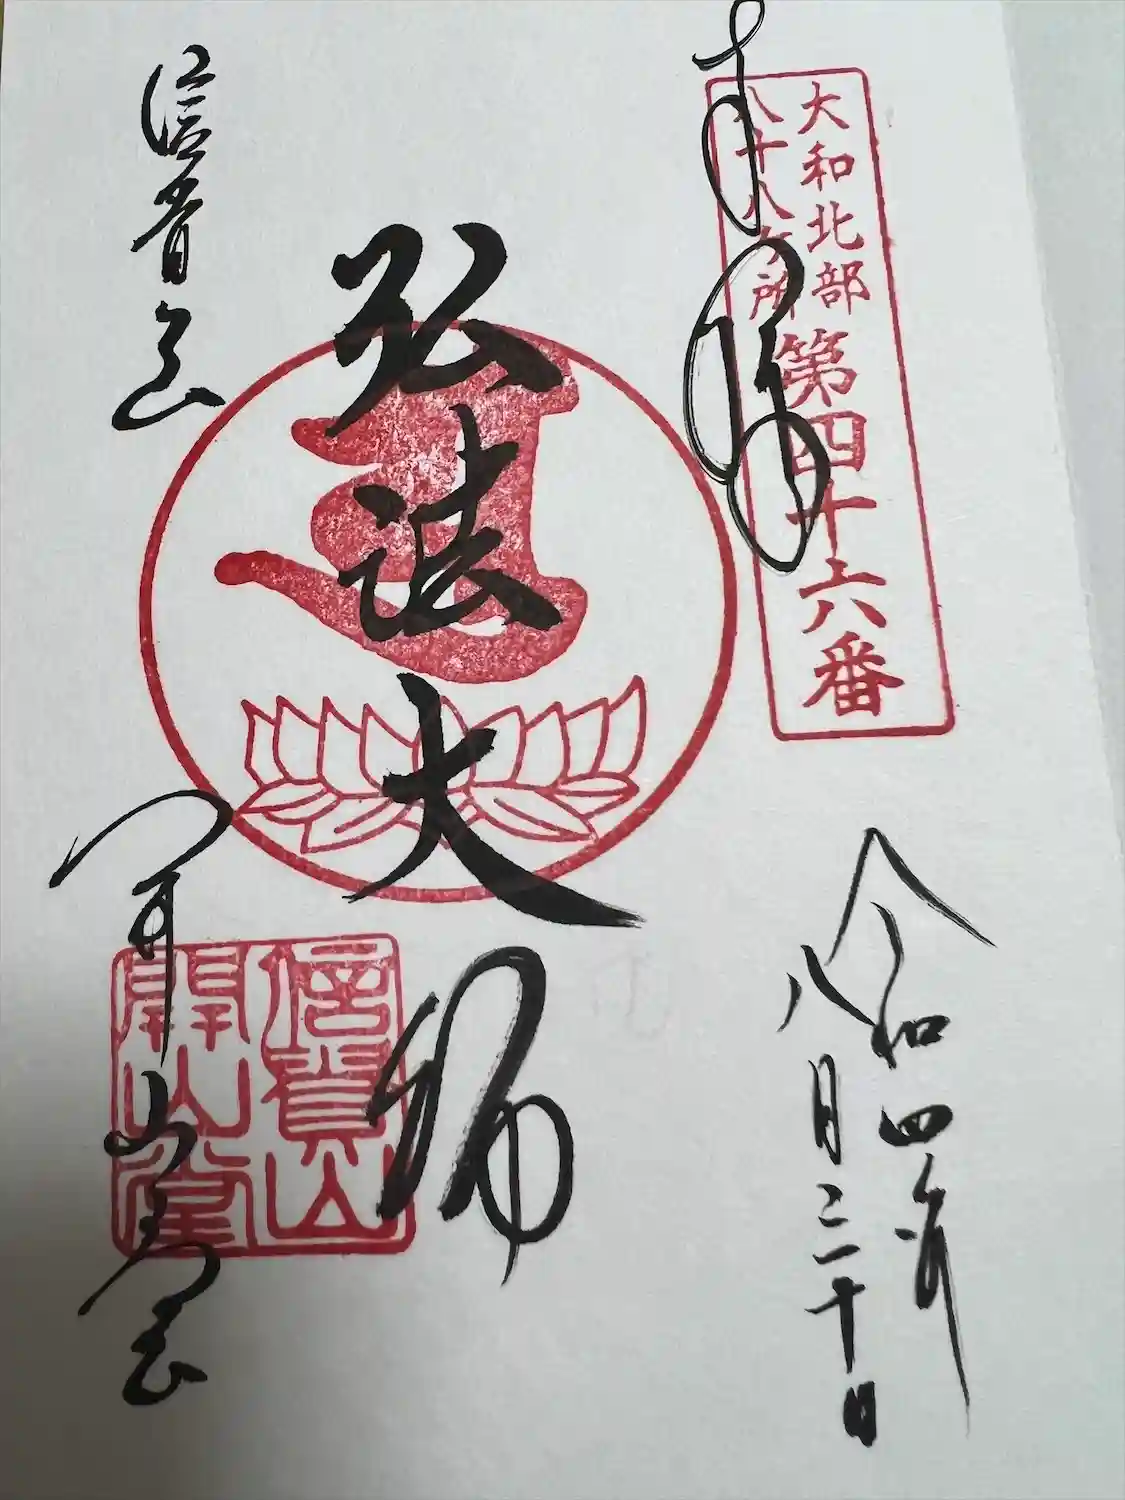 奉拝
大和北部
八十八ヶ所
第四十六番
令和四年
八月三十日
弘法大師
信貴山
信貴山
開山堂
開山堂